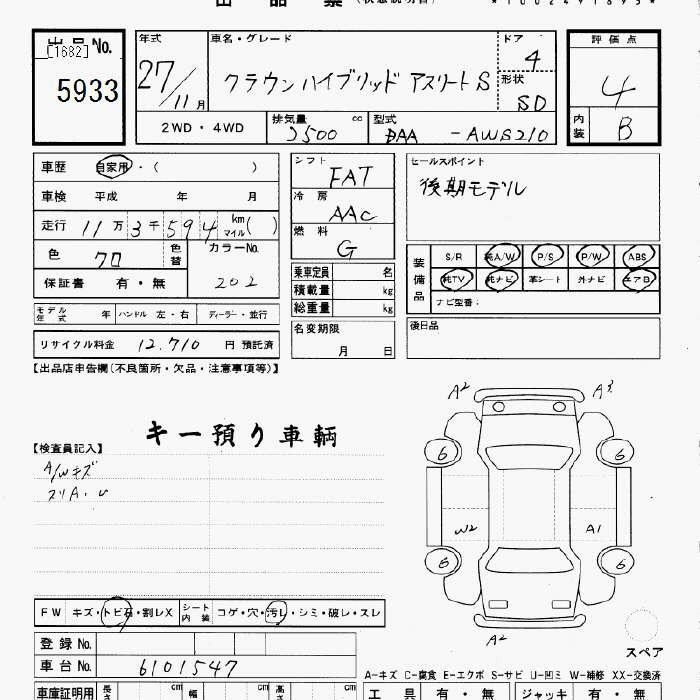 出品票(状態説明書) *1002491895*
出品No. [1682]
5933
年式 27/11月
車名・グレード クラウンハイブリッド アスリートS
ドア 4
形状 SD
評価点 4
内装 B
2WD・4WD
排気量 2500 cc
型式 DAA -AWS210
車歴 自家用・( )
車検 平成 年 月
走行 11万3千594 km マイル( )
色 クロ 色替 カラーNo. 202
保証書 有・無
モデル年式 年 ハンドル 左・右 ディーラー・並行
リサイクル料金 12.710 円 預託済
シフト FAT
冷房 AAC
燃料 G
乗車定員 名
積載量 kg
総重量 kg
名変期限 月 日
セールスポイント
後期モデル
装備品 S/R 純A/W P/S P/W ABS
純TV 純ナビ 革シート 外ナビ エアロ
ナビ型番:
後日品
【出品店申告欄(不良箇所・欠品・注意事項等)】
キー預り車輌
【検査員記入】
A/Wキズ
スリA.U
A2 A3
6 6
W2 A1
6 6
A2
スペア
FW キズ・トビ石・割レX シート内装 コゲ・穴・汚レ・シミ・破レ・スレ
登録No.
車台No. 6101547
A-キズ C-腐食 E-エクボ S-サビ U-凹ミ W-補修 XX-交換済
車庫証明用 長さ cm 幅 cm 高さ cm
工具 有・無 ジャッキ 有・無